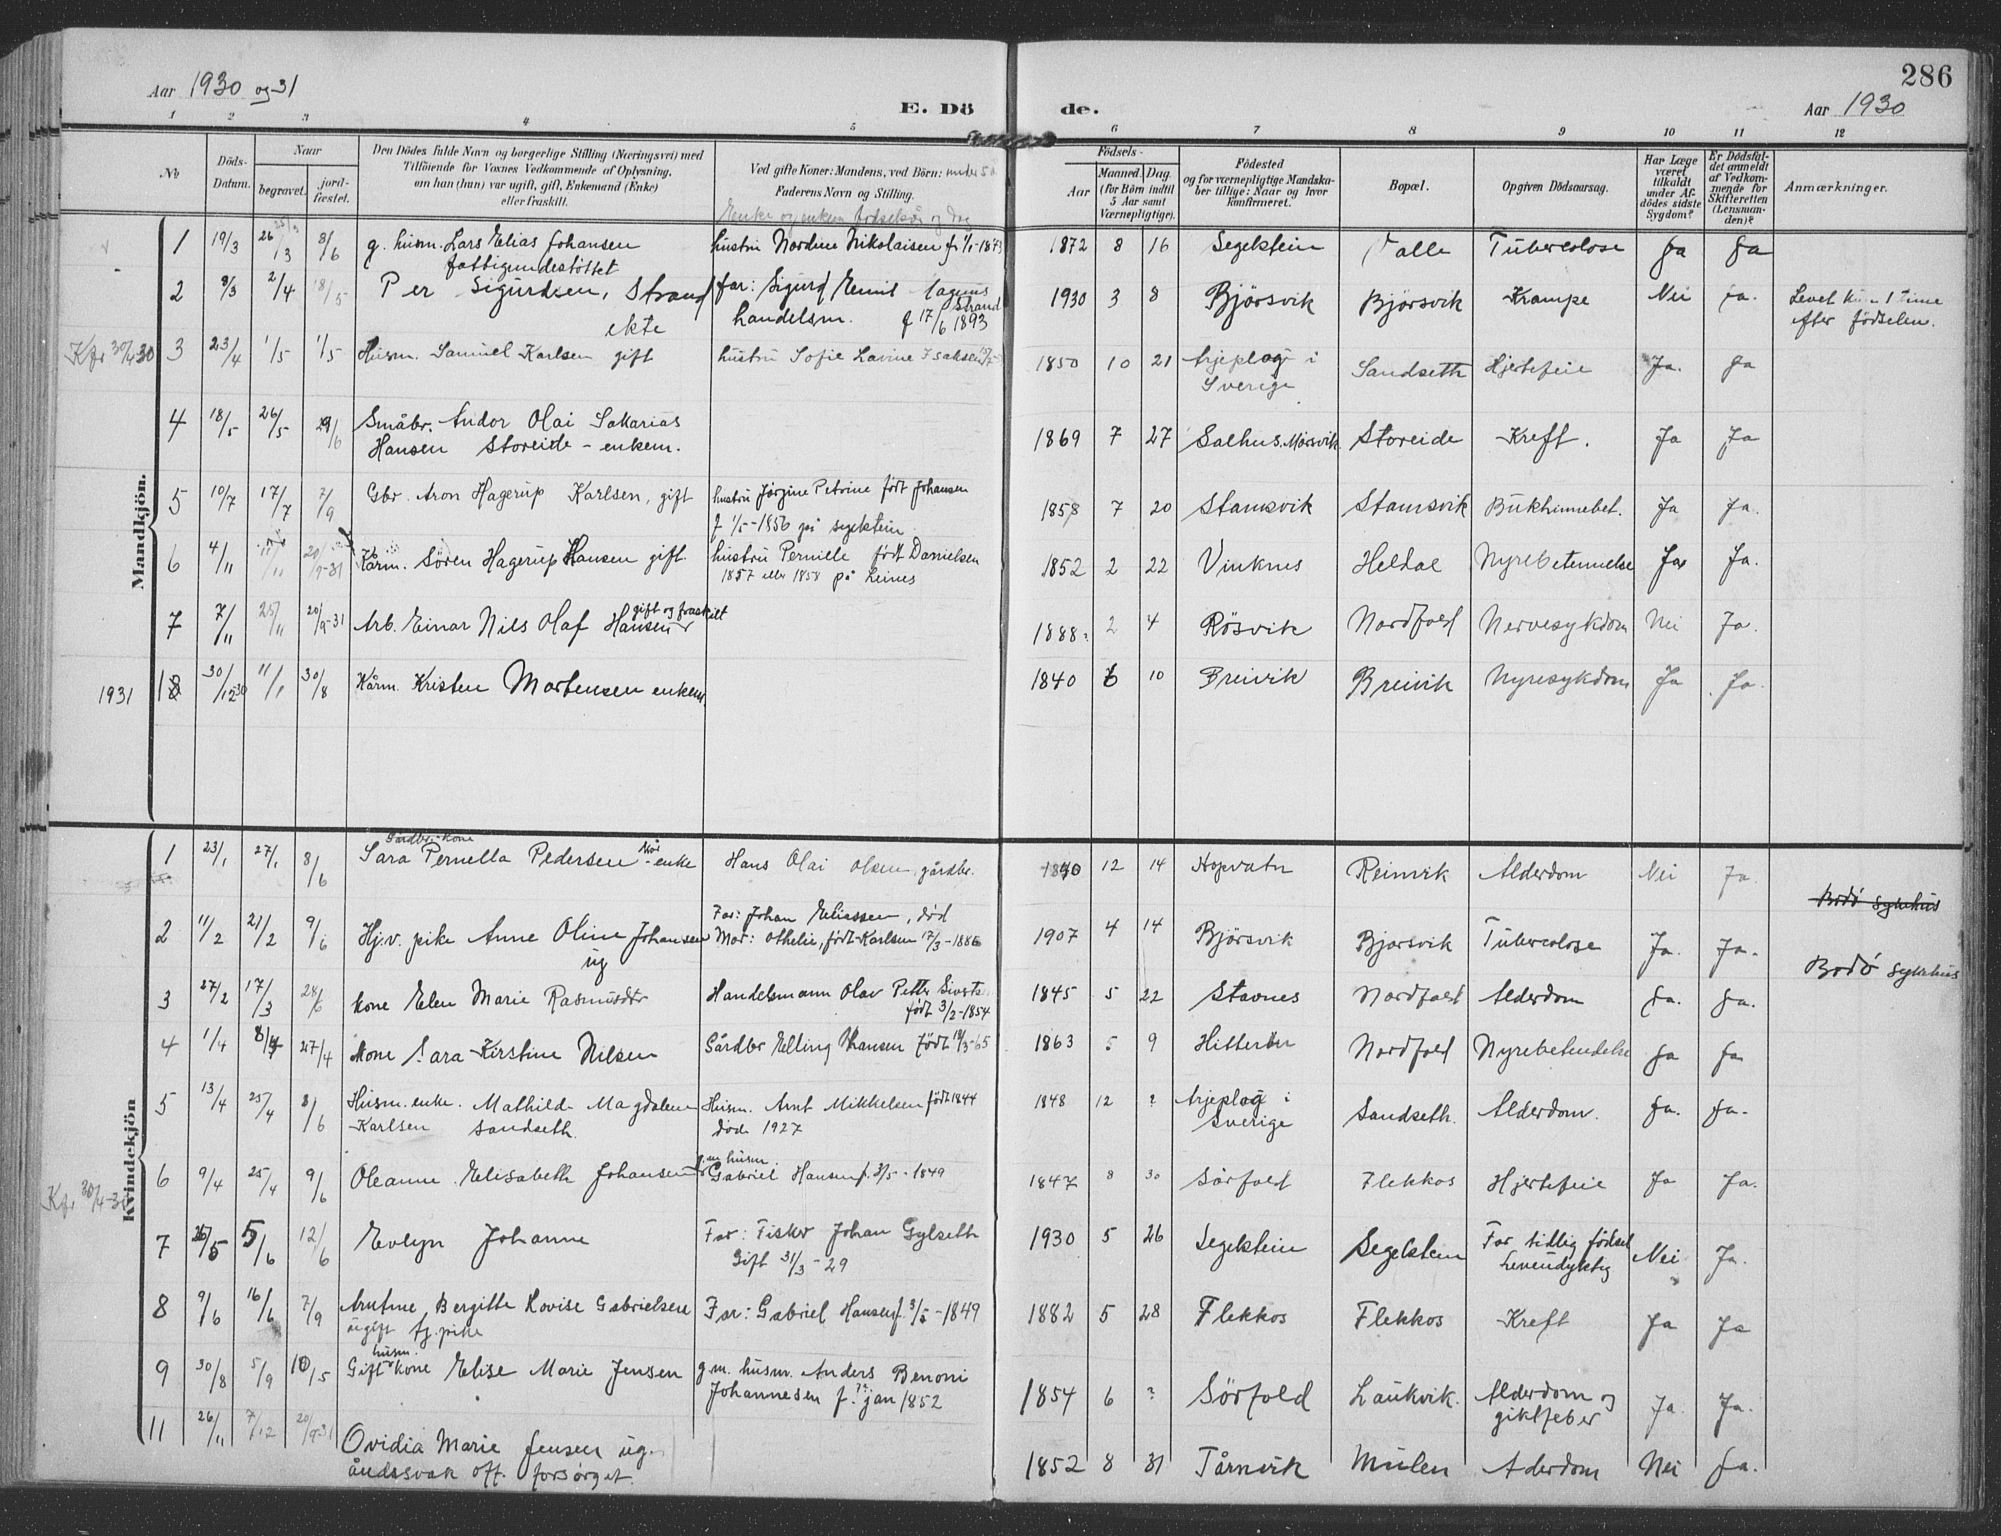 286
Aar 1930 og 31
E. Dö de.
Aar 1930
1 2 3 4 5 6 7 8 9 10 11 12
No
Döds-Datum.
Naar
begravet.
jord-fæstet.
Den Dödes fulde Navn og borgerlige Stilling (Næringsvei) med
Tilföiende for Voxnes Vedkommende af Oplysning,
om han (hun) var ugift, gift, Enkemand (Enke)
eller fraskilt.
Ved gifte Koner: Mandens, ved Börn:
Faderens Navn og Stilling.
Födsels-
Aar
Maaned. Dag.
(for Börn indtil
5 Aar samt
Værnepligtige).
Födested
og for værnepligtige Mandska-
ber tillige: Naar og hvor
konfirmeret.
Bopæl.
Opgiven Dödsaarsag.
Har Læge
været
tilkaldt
under Af-
dödes sidste
Sygdom?
Er Dödsfal-
det anmeldt
af Vedkom-
mende for
Skifteretten
(Lensman-
den)?
Anmærkninger.
Mandkjön.
1 19/3 8/6 g. husm. Lars Elias Johansen hustru Nordine Nikolaisen 1872 8 16 Segelstein Tuberculose Ja Ja
fattigunderstöttet
2 8/3 2/4 18/5 Per Sigurdsen, Strand far: Sigurd Emil Magnus 1930 3 8 Björsvik Björsvik Krampe Nei Ja. Levet kun 1 time
ekte handelsm. Strand f 17/6 1893 efter födselen.
Kfr 30/4 30 3 23/4 1/5 1/5 Husm. Samuel Karlsen gift hustru Sofie Lavine Isaksen 1850 10 21 Arjeplog i Sandseth Hjertefeil Ja. Ja
Sverige
4 18/5 26/5 Småbr. Andor Olai Sakarias 1869 7 27 Salhus. Mørsvik Storeide Kreft. Ja Ja
Hansen Storeide - enkem.
5 10/7 17/7 7/9 Gbr. Aron Hagerup Karlsen, gift hustru Jörgine Petrine födt Johansen 1858 7 20 Stamsvik Stamsvik Bukhinnebet. Ja Ja.
f 1/5-1856 på
6 4/11 20/9-31 Kårm. Sören Hagerup Hansen gift. hustru Pernille födt Danielsen 1852 2 22 Vinknes Heldal Nyrebetennelse Ja Ja.
1857 eller 1858 på Leines
7 7/11 25/11 20/9-31 Arb. Einar Nils Olaf Hansen gift og fraskilt 1888 2 4 Røsvik Nordfold Nervesykdom Nei Ja.
1931 1 30/12 30 11/1 30/8 Kårm. Kristen Mortensen enkem. 1840 6 10 Breivik Breivik Nyresykdom Ja Ja.
Kvindekjön
1 23/1 27/1 8/6 Gårdbr.kone Sara Pernella Pedersen kår enke Hans Olai Olsen, gårdbr. 12 14 Hopvatn Reinvik Alderdom Nei Ja.
Bodø sykehus
2 11/2 21/2 9/6 Hj.v. pike Anne Oline Johansen Far: Johan Eliassen, död 1907 4 14 Björsvik Bjorsvik Tuberculose Ja. Ja.
ug Mor: Othelie, födt Karlsen 17/3-1886
Bodø sykehus
3 27/2 17/3 28/6 kone Elen Marie Rasmusdtr Handelsmann Olav Petter Sivertsen 1845 5 22 Stavnes Nordfold Alderdom Ja. Ja.
födt 3/2-1854
4 1/4 27/4 Kone Sara Kirstine Nilsen Gårdbr Elling Hansen födt 1863 5 9 Nordfold Nyrebetendelse Ja Ja
5 13/4 25/4 8/6 Husm. enke. Mathilde Magdalene Husm. Arnt Mikkelsen födt 1844 1848 12 ? Arjeplog i Sandseth. Alderdom. Ja. Ja.
Karlsen Sandseth. död 1927 Sverige
Kfr 30/4-30 6 9/4 25/4 9/6 Oleanne Elisabeth Johansen g.m husm. Gabriel Hansen f. 3/5-1849 1847 8 30 Sörfold Flekkos Hjertefeil Ja Ja.
7 26/5 5/6 12/6 Evelyn Johanne Far: Fisker Johan Gylseth 1930 5 26 Segelstein Segelstein For tidlig födsel Nei Ja.
Gift 31/3-29
8 9/6 16/6 7/9 Arntine Bergitte Hovise Gabrielsen Far: Gabriel Hansen f. 3/5-1849 1882 5 28 Flekkos Flekkos Kreft Ja Ja
ugift tj. pike
9 30/8 5/9 10/5 Gift husm. kone Elise Marie Jensen g.m. husm. Anders Benoni 1854 6 ? Sörfold Laukvik. Alderdom og Ja. Ja.
Johannesen f. ? jan 1852 giktfeber
11 26/11 7/12 20/9-31 Ovidia Marie Jensen ug. 1852 8 31 Tårnvik Mulen Aderdom Nei Ja.
åndssvak off. forsørget.